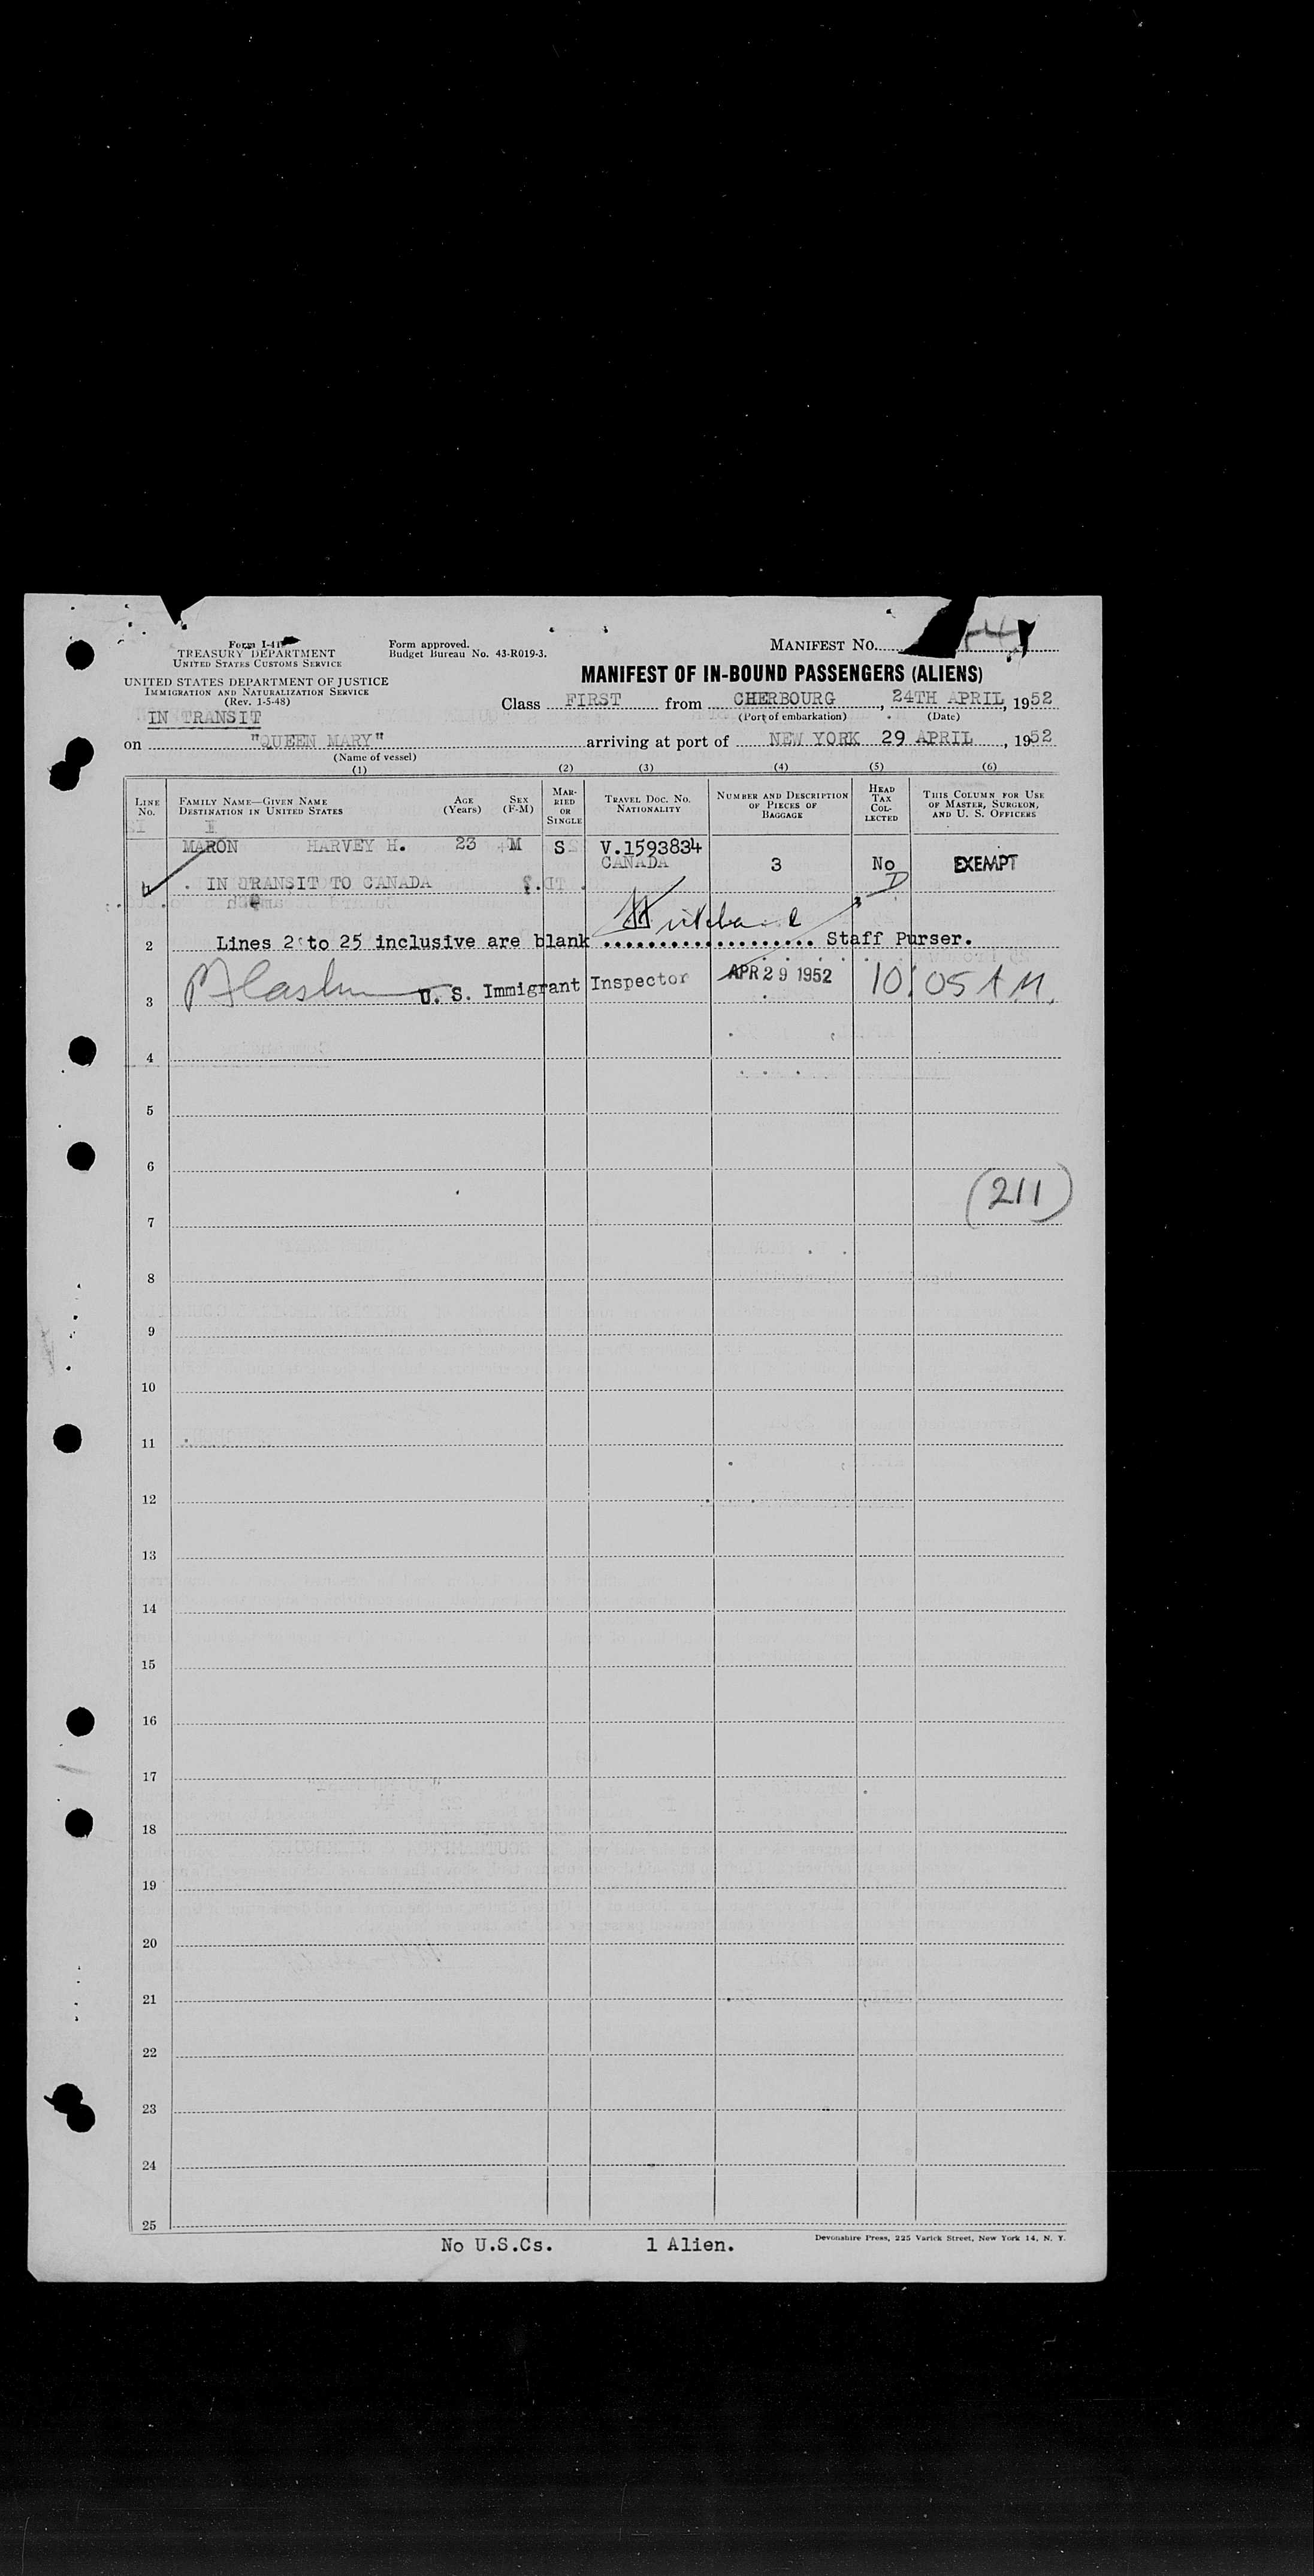 Form I-41
TREASURY DEPARTMENT
UNITED STATES CUSTOMS SERVICE
UNITED STATES DEPARTMENT OF JUSTICE
IMMIGRATION AND NATURALIZATION SERVICE
(Rev. 1-5-48)
IN TRANSIT
Form approved.
Budget Bureau No. 43-R019-3.
MANIFEST NO.
MANIFEST OF IN-BOUND PASSENGERS (ALIENS)
Class FIRST from CHERBOURG, 24TH APRIL, 1952
(Port of embarkation) (Date)
on "QUEEN MARY" arriving at port of NEW YORK 29 APRIL, 1952
(Name of vessel)
(1) (2) (3) (4) (5) (6)
LINE NO.
FAMILY NAME—GIVEN NAME
DESTINATION IN UNITED STATES
AGE (Years)
SEX (F-M)
MARRIED OR SINGLE
TRAVEL DOC. NO.
NATIONALITY
NUMBER AND DESCRIPTION OF PIECES OF BAGGAGE
HEAD TAX COLLECTED
THIS COLUMN FOR USE OF MASTER, SURGEON, AND U. S. OFFICERS
MARON HARVEY H. 23 M S V.1593834
CANADA 3 No EXEMPT
IN TRANSIT TO CANADA
2 Lines 2 to 25 inclusive are blank .................... Staff Purser.
3 U. S. Immigrant Inspector APR 29 1952 10:05 AM.
4
5
6
(211)
7
8
9
10
11
12
13
14
15
16
17
18
19
20
21
22
23
24
25
No U.S.Cs. 1 Alien.
Devonshire Press, 225 Varick Street, New York 14, N. Y.